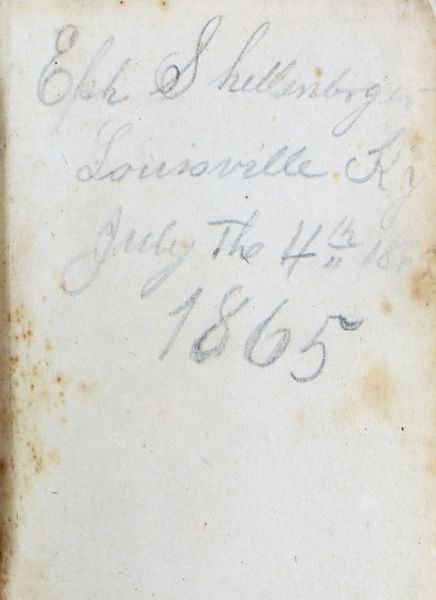 Eph Shellenborger
Louisville Ky
July The 4th 1865
1865